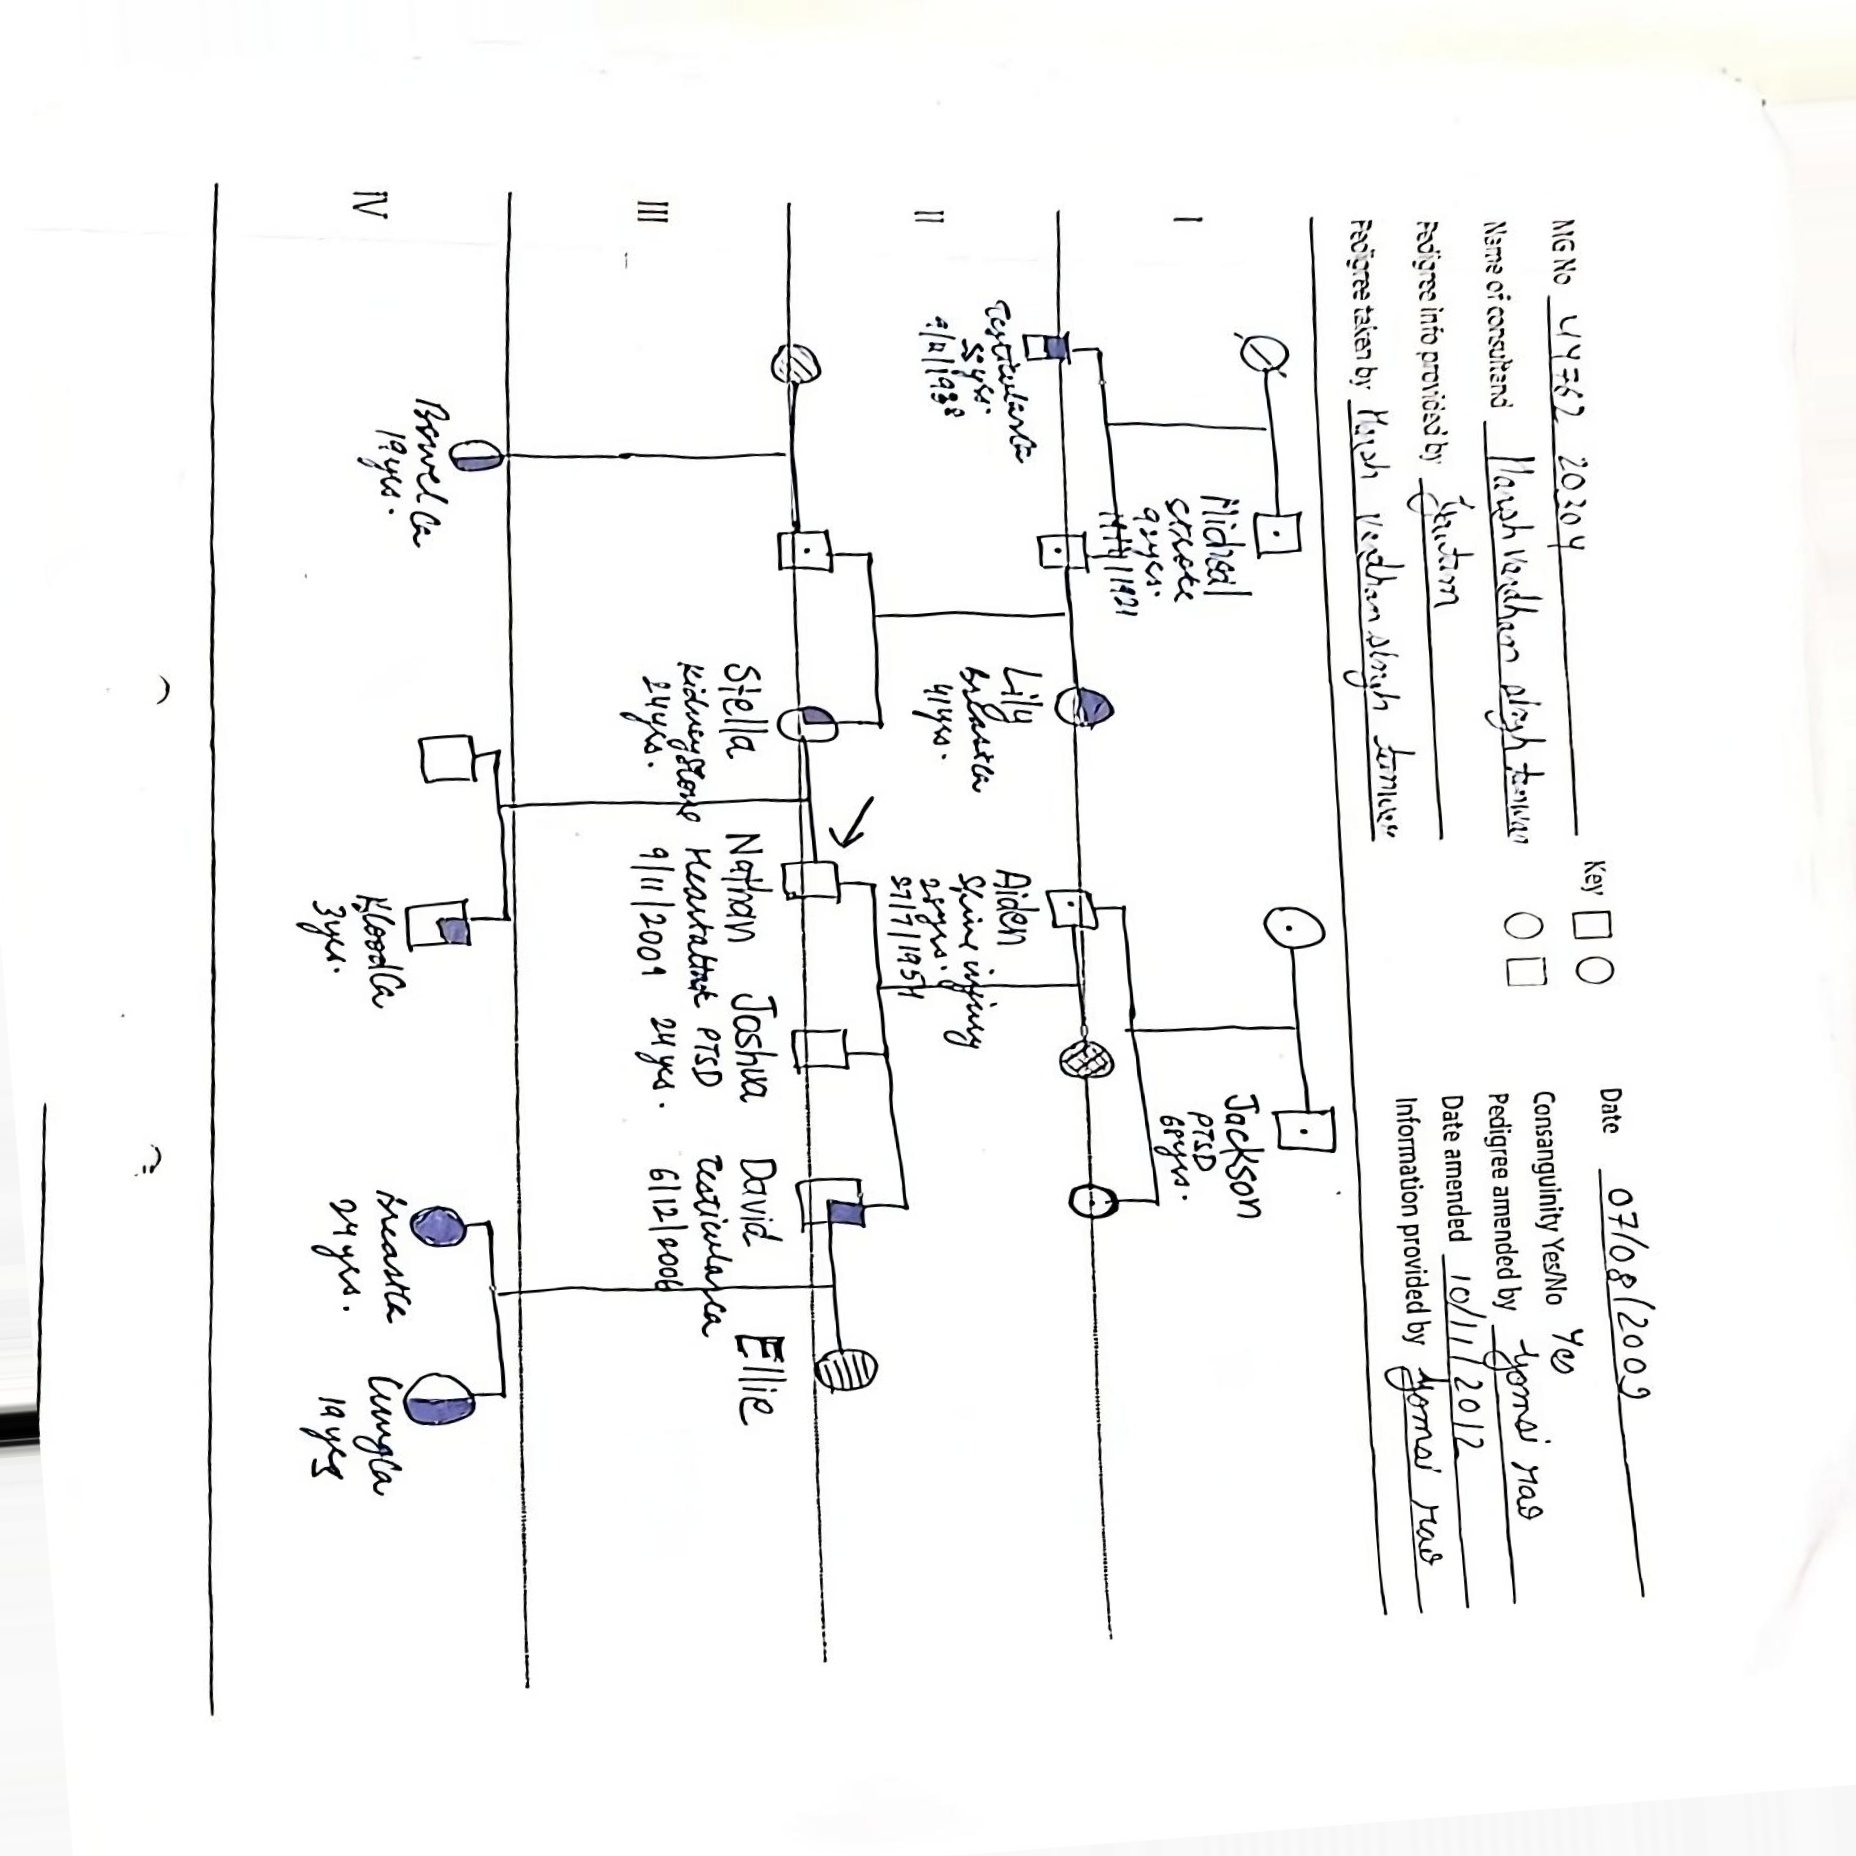 MG No 44762 20204
Name of consultand Harsh Vardhan singh tanwar
Pedigree info provided by Gautam
Pedigree taken by Harsh Vardhan singh tanwar
Key
Date 07/08/2009
Consanguinity Yes/No Yes
Pedigree amended by Yomsi rao
Date amended 10/11/2012
Information provided by Yomsi rao
I
Michael
stroke
9yrs.
1921
Jackson
PTSD
68yrs.
II
TesticularCa
5yrs.
Lily
breastCa
41yrs.
Aiden
Spine injury
25yrs.
27/7/1954
III
Stella
Kidney stone
24yrs.
Nathan
Heartattack
9/11/2009
Joshua
PTSD
24yrs.
David
TesticularCa
6/12/2006
Ellie
IV
BowelCa
19yrs.
BloodCa
3yrs.
BreastCa
24yrs.
LungCa
19yrs